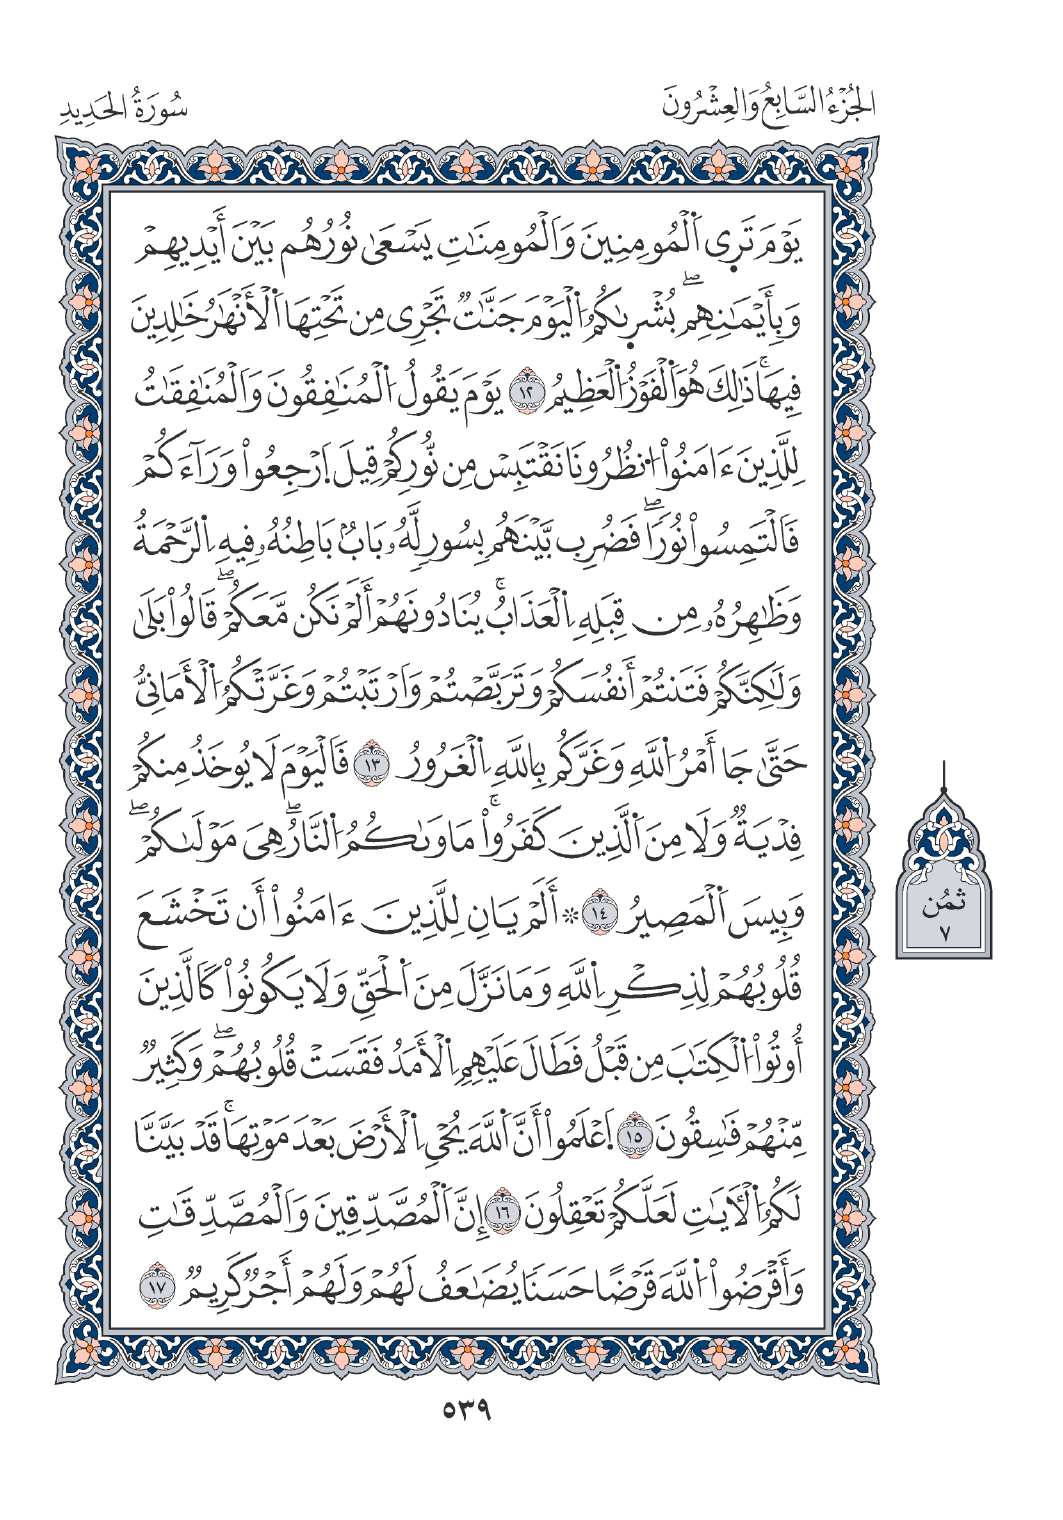 الجُزْءُ السَّابِعُ وَالعِشْرُونَ
سُورَةُ الحَدِيدِ
يَوْمَ تَرَى اَلْمُومِنِينَ وَالْمُومِنَٰتِ يَسْعَىٰ نُورُهُم بَيْنَ أَيْدِيهِمْ
وَبِأَيْمَٰنِهِمۖ بُشْر۪ىٰكُمُ اُلْيَوْمَ جَنَّٰتٞ تَجْرِي مِن تَحْتِهَا اَلْأَنْهَٰرُ خَٰلِدِينَ
فِيهَاۚ ذَٰلِكَ هُوَ اَلْفَوْزُ اُلْعَظِيمُ ١٢ يَوْمَ يَقُولُ اُلْمُنَٰفِقُونَ وَالْمُنَٰفِقَٰتُ
لِلَّذِينَ ءَامَنُواْ اُ۟نظُرُونَا نَقْتَبِسْ مِن نُّورِكُمْ قِيلَ اَ۪رْجِعُواْ وَرَآءَكُمْ
فَالْتَمِسُواْ نُورٗاۖ فَضُرِب بَّيْنَهُم بِسُورٖ لَّهُۥ بَابُۢ بَاطِنُهُۥ فِيهِ اِلرَّحْمَةُ
وَظَٰهِرُهُۥ مِن قِبَلِهِ اِلْعَذَابُۚ يُنَادُونَهُمْ أَلَمْ نَكُن مَّعَكُمْۖ قَالُواْ بَلَىٰ
وَلَٰكِنَّكُمْ فَتَنتُمْ أَنفُسَكُمْ وَتَرَبَّصْتُمْ وَارْتَبْتُمْ وَغَرَّتْكُمُ اُلْأَمَانِيُّ
حَتَّىٰ جَا أَمْرُ اُللَّهِ وَغَرَّكُم بِاللَّهِ اِلْغَرُورُ ١٣ فَالْيَوْمَ لَا يُوخَذُ مِنكُمْ
فِدْيَةٞ وَلَا مِنَ اَلَّذِينَ كَفَرُواْۚ مَاوَىٰكُمُ اُلنَّارُۖ هِيَ مَوْلَىٰكُمْۖ
وَبِيسَ اَلْمَصِيرُ ١٤ ۞ أَلَمْ يَانِ لِلَّذِينَ ءَامَنُواْ أَن تَخْشَعَ
قُلُوبُهُمْ لِذِكْرِ اِللَّهِ وَمَا نَزَّلَ مِنَ اَلْحَقِّ وَلَا يَكُونُواْ كَالَّذِينَ
أُوتُواْ اُلْكِتَٰبَ مِن قَبْلُ فَطَالَ عَلَيْهِمِ اِلْأَمَدُ فَقَسَتْ قُلُوبُهُمْۖ وَكَثِيرٞ
مِّنْهُمْ فَٰسِقُونَ ١٥ اَ۪عْلَمُواْ أَنَّ اَللَّهَ يُحْيِ اِلْأَرْضَ بَعْدَ مَوْتِهَاۚ قَدْ بَيَّنَّا
لَكُمُ اُلْأٓيَٰتِ لَعَلَّكُمْ تَعْقِلُونَ ١٦ إِنَّ اَلْمُصَّدِّقِينَ وَالْمُصَّدِّقَٰتِ
وَأَقْرَضُواْ اُللَّهَ قَرْضًا حَسَنٗا يُضَٰعَفُ لَهُمْ وَلَهُمْ أَجْرٞ كَرِيمٞ ١٧
ثمُن
٧
٥٣٩